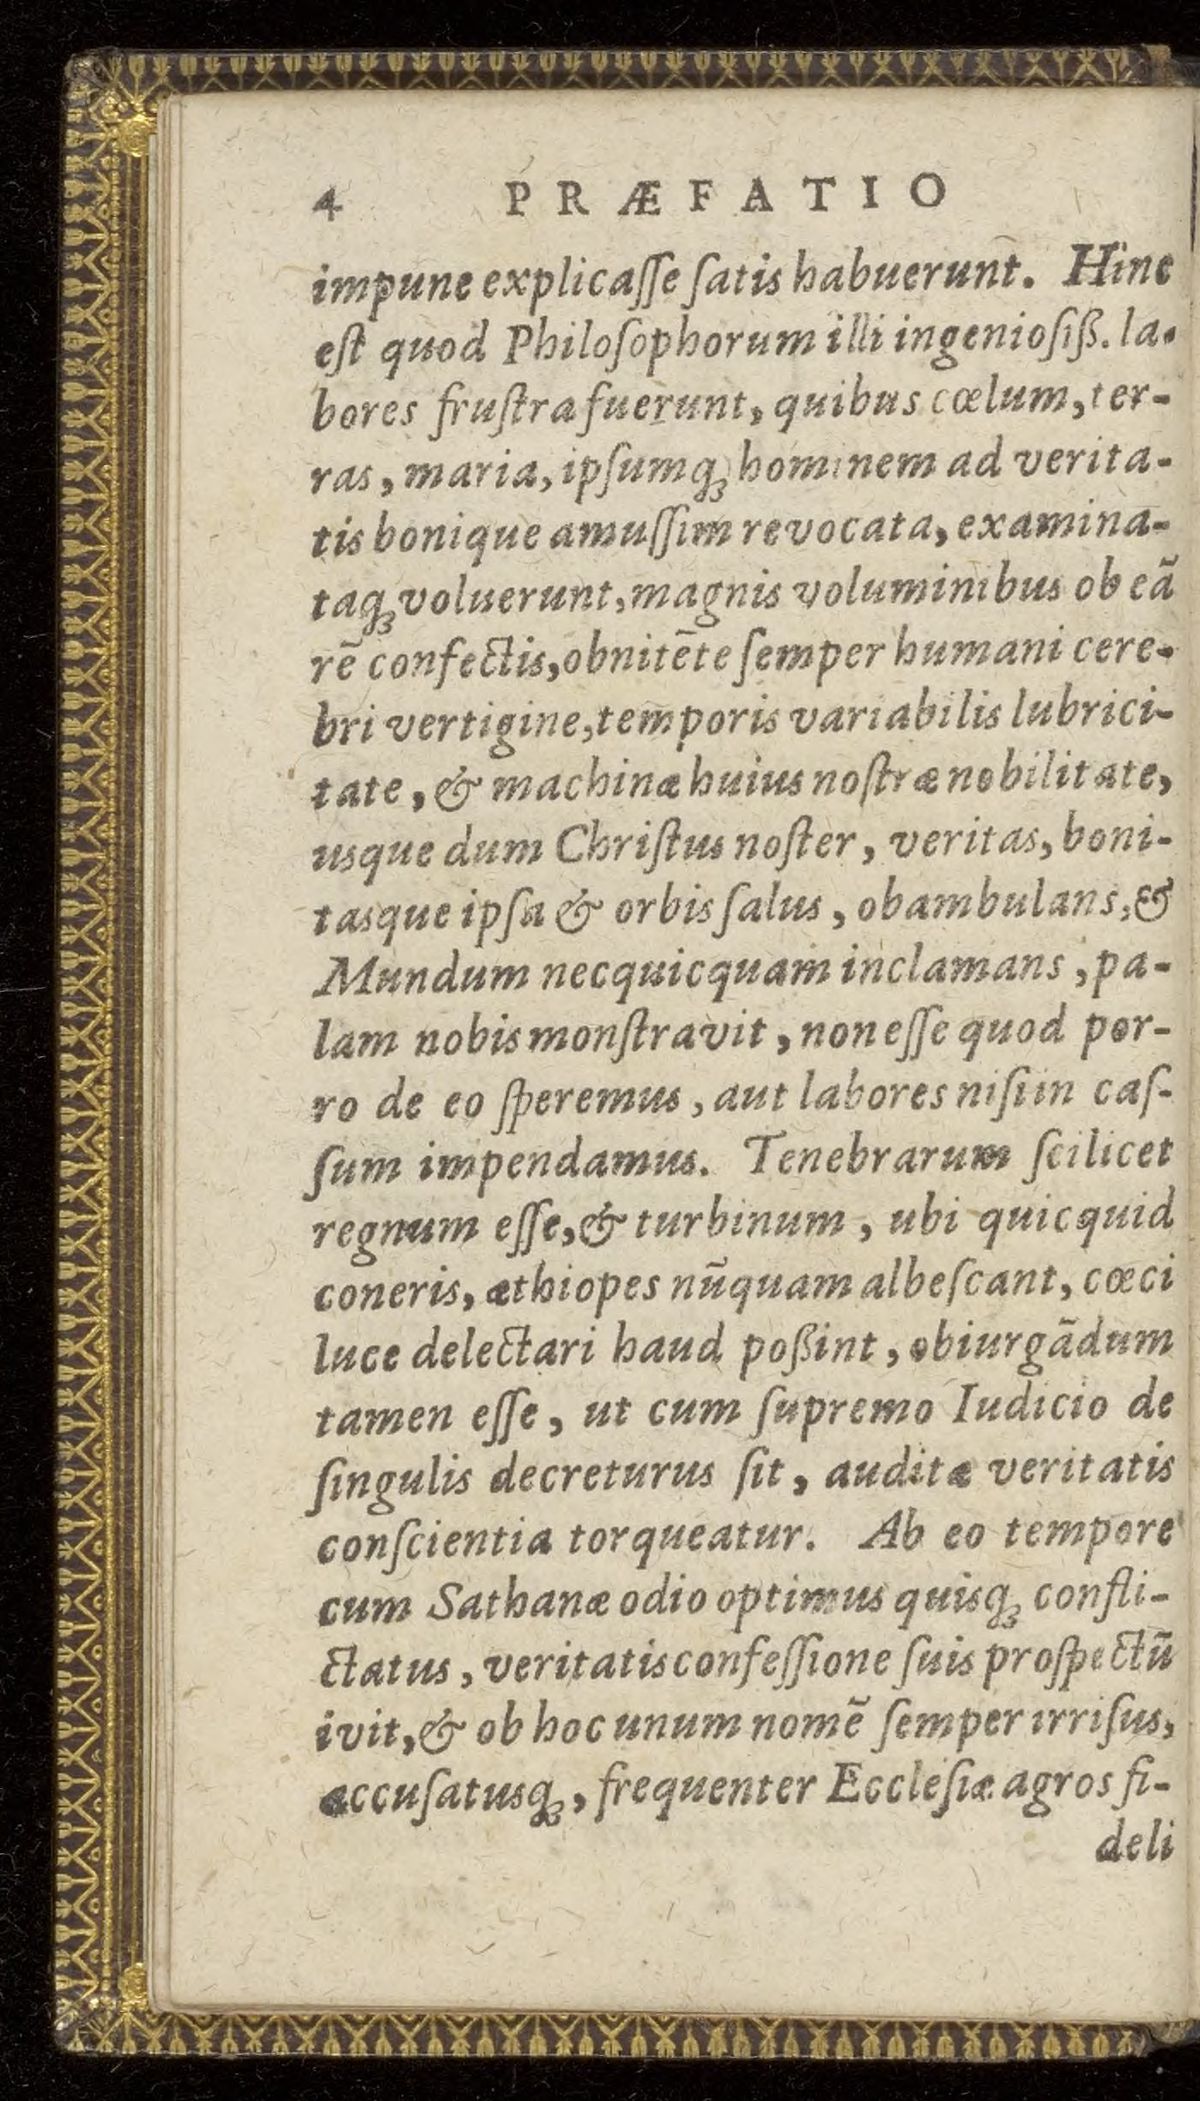 4 PRÆFATIO
impune explicaſſe ſatis habuerunt. Hinc
eſt quod Philoſophorum illi ingenioſiß. la-
bores fruſtra fuerunt, quibus cœlum, ter-
ras, maria, ipſumq; hominem ad verita-
tis bonique amuſſim revocata, examina-
taq; voluerunt, magnis voluminibus ob eã
rē confectis, obnitēte ſemper humani cere-
bri vertigine, temporis variabilis lubrici-
tate, & machinæ huius noſtræ nobilitate,
usque dum Chriſtus noſter, veritas, boni-
tasque ipſa & orbis ſalus, obambulans, &
Mundum necquicquam inclamans, pa-
lam nobis monſtravit, non eſſe quod por-
ro de eo ſperemus, aut labores niſi in caſ-
ſum impendamus. Tenebrarum ſcilicet
regnum eſſe, & turbinum, ubi quicquid
coneris, æthiopes nūquam albeſcant, cœci
luce delectari haud poßint, obiurgãdum
tamen eſſe, ut cum ſupremo Iudicio de
ſingulis decreturus ſit, auditæ veritatis
conſcientia torqueatur. Ab eo tempore
cum Sathanæ odio optimus quisq; confli-
ctatus, veritatis confeſſione ſuis proſpectū
ivit, & ob hoc unum nomē ſemper irriſus,
accuſatusq;, frequenter Eccleſiæ agros fi-
deli